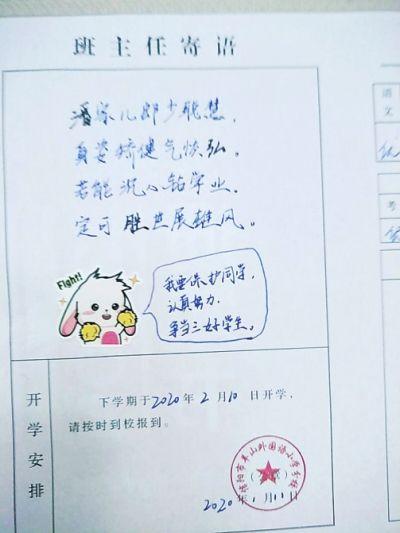 班主任寄语
潘家儿郎少聪慧，
真姿矫健气恢弘。
若能沉心钻学业，
定可胜兰展雄风。
Fight!
我要保护同学，
认真努力，
争当三好学生。
开学安排
下学期于2020年2月10日开学，
请按时到校报到。
2020年1月11日
语文
考